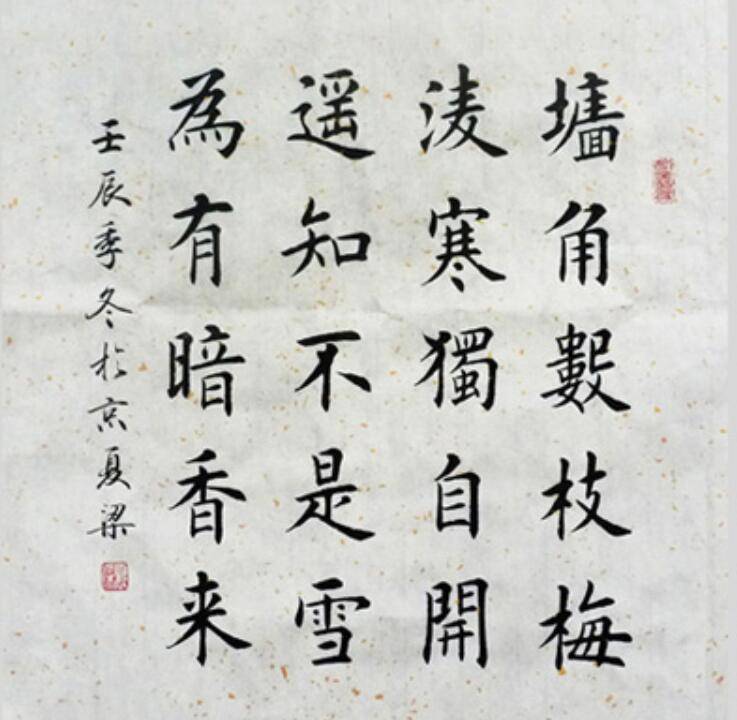 墻角數枝梅
凌寒獨自開
遥知不是雪
為有暗香来
壬辰季冬於京夏梁